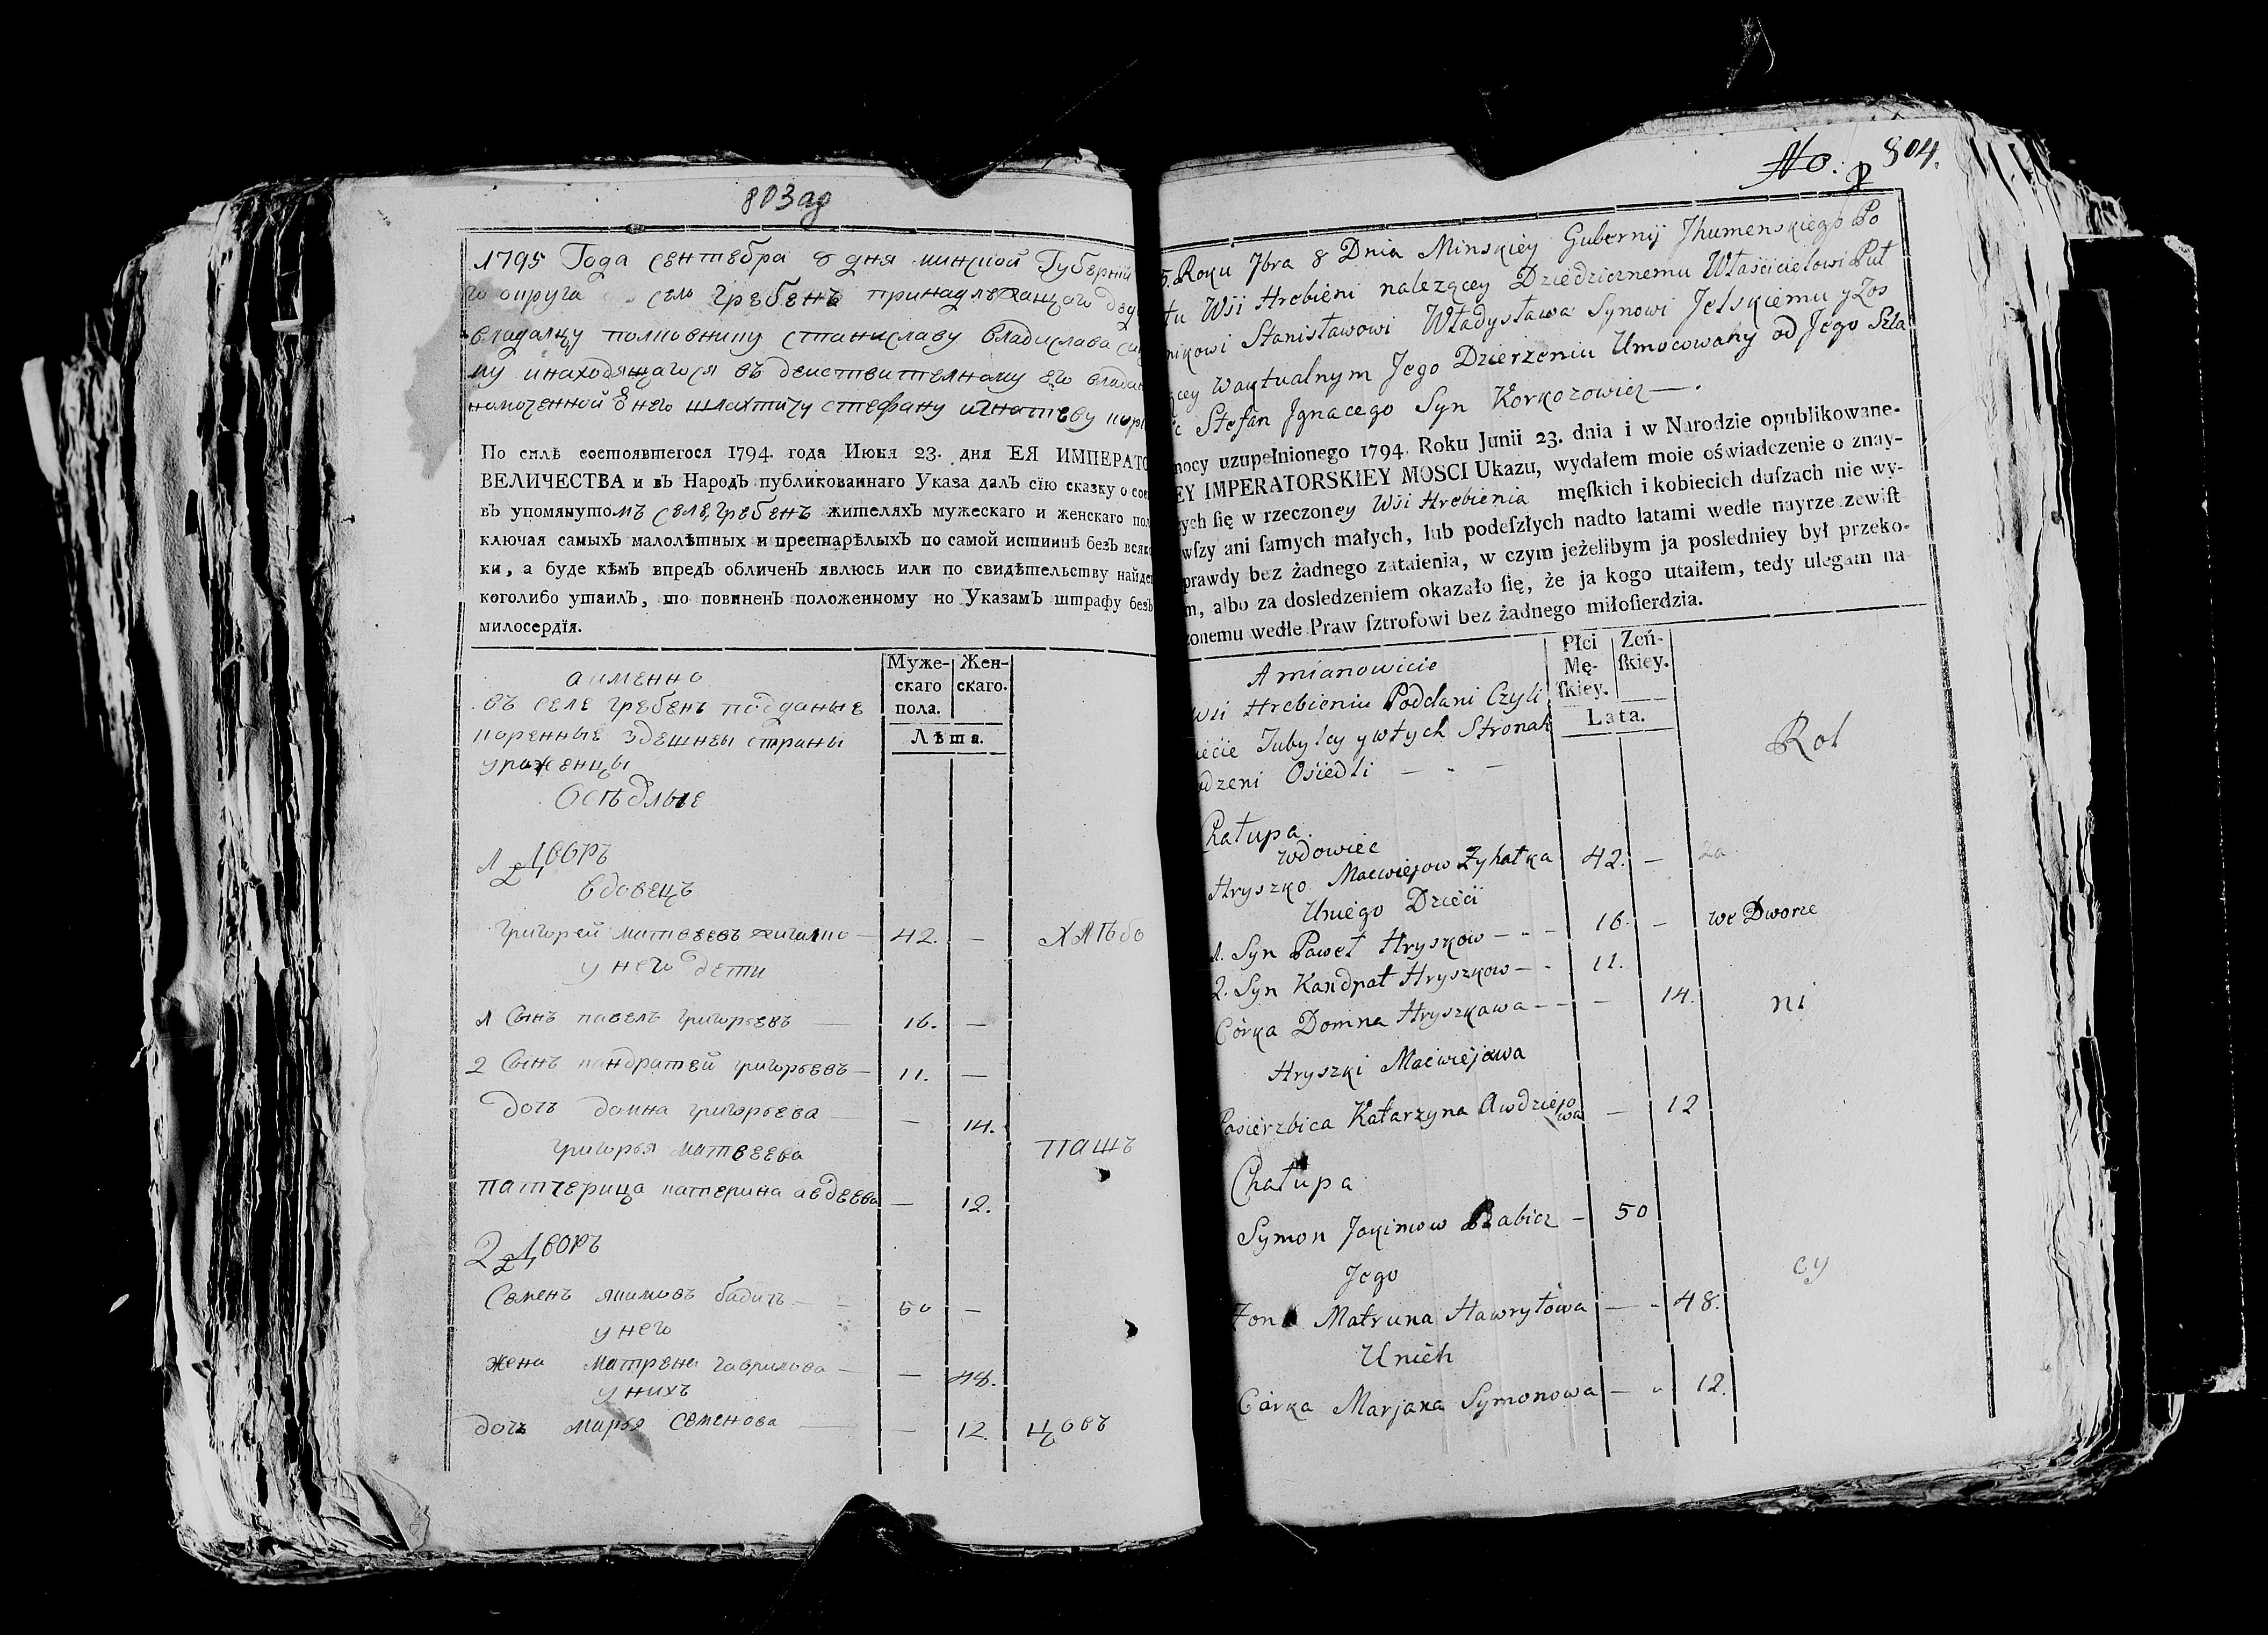 803 ад
1795 Года сентебра 8 дня минской Губернии
го округа село гребень принадлежащого
владалцу полковнику станиславу владислава
му инаходящагося въ деиствителному его
него шляхтичу стефану игнатеву
По силѣ состоявшегося 1794. года Июня 23. дня ЕЯ ИМПЕРАТО
ВЕЛИЧЕСТВА и въ НародЪ публикованнаго Указа далЪ сїю сказку о
въ упомянутомъ селе, гребень жителяхЪ мужескаго и женскаго пол
ключая самыхЪ малолѣтныхъ и престарѣлыхЪ по самой истиннѣ безЪ всяк
ки, а буде кѣмЪ впредЪ обличенЪ явлюсь или по свидѣтельству найде
коголибо утаилЪ, то повиненЪ положенному но УказамЪ штрафу безЪ
милосердїя.
аименно
въ селе гребеньподданые
коренные здешнеи страны
уроженцы
Осѣдлые
Муже-
скаго
пола.
Жен-
скаго.
Лѣта.
1 Дворъ
вдовецъ
григорей матвеевъ жигалко — 42. — хлѣбо
у него дети
1 Сынъ павелъ григорьевъ — 16. —
2 Сынъ кандратей григорьевъ — 11. —
дочь домна григорьева — 14.
григорья матвеева пашъ
патчерица катерина авдеева — 12.
2 Дворъ
Семенъ якимовъ бабичъ — 50 —
у него
жена матрена гаврилова — 48.
у нихъ
дочь марья Семенова — 12. цовъ
No. 804.
5. Roku 7bra 8 Dnia Minskiey Gubernij Jhumenskiego Po
tu Wsi Hrebieni nalezącey Dziedzicznemu Właścicielowi Puł
nikowi Stanisławowi Władysława Synowi Jelskiemu y Zos
ącey w aktualnym Jego Dzierzeniu Umocowany od Jego Szla
c Stefan Jgnacego Syn Korkozowicz —.
mocy uzupełnionego 1794. Roku Junii 23. dnia i w Narodzie opublikowane-
EY IMPERATORSKIEY MOSCI Ukazu, wydałem moie oświadczenie o znay-
ych ſię w rzeczoney Wsi Hrebienia męſkich i kobiecich duſzach nie wy-
wſzy ani ſamych małych, lub podeſzłych nadto latami wedle nayrzezewiſt
prawdy bez żadnego zataienia, w czym jeżelibym ja posledniey był przeko-
m, albo za dosledzeniem okazało ſię, że ja kogo utaiłem, tedy ulegam na
zonemu wedle Praw ſztrofowi bez żadnego miłoſierdzia.
Amianowicie
Wsi Hrebieniu Poddani Czyli
iecie Tubylcy y wtych Stronah
odzeni Osiedli — - —
Płci
Mę-
ſkiey.
Zeń-
ſkiey.
Lata.
Rol
Chałupa.
Wdowiec
Hryszko Macwiejow Zyhałka 42. —
Uniego Dzieci
1. Syn Paweł Hryszkow — - - 16. — we Dworze
2. Syn Kandrat Hryszkow — - 11.
Córka Domna Hryszkawa — - — 14. ni
Hryszki Macwiejawa
Pasierzbica Katarzyna Awdziejowa — 12
Chałupa
Symon Jakimow Babicz — 50
Jego cy
Zona Matruna Hawryłowa — - 48.
Unich
Córka Marjana Symonowa — - 12.